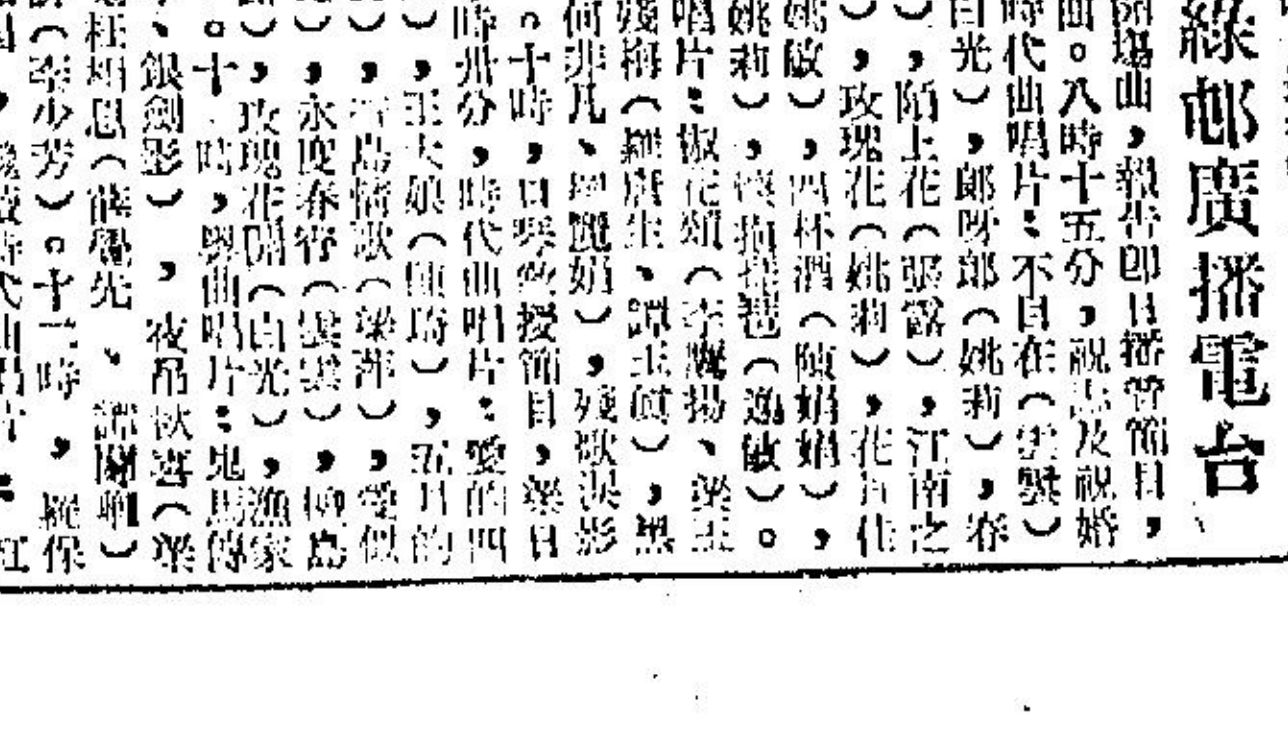 綠邨廣播電台
開場曲，報告即日播音節目，
曲。八時十五分，祝壽及祝婚
時代曲唱片：不自在（雲雲）
白光），郎呀郎（姚莉），春
），陌上花（張露），江南之
），玫瑰花（姚莉），花五仕
姚敏），四杯酒（陳娟娟），
姚莉），懷抱琵琶（逸敏）。
唱片：椒花頌（李飄揚、梁玉
殘梅（羅慶生、譚玉眞），黑
何非凡、絕麗娟），殘歌淚影
。十時，口琴敎授節目，梁日
時卅分，時代曲唱片：愛的四
），王大娘（陳琦），五月的
），靑島情歌（梁萍），愛似
），永度春宵（雲雲），檀島
），玫瑰花開（白光），漁家
。十一時，粵曲唱片：鬼馬傳
、銀劍影），夜吊秋喜（梁
枉相思（薛覺先、譚蘭卿）
（李少芳）。十二時，羅保
時代曲唱片：紅